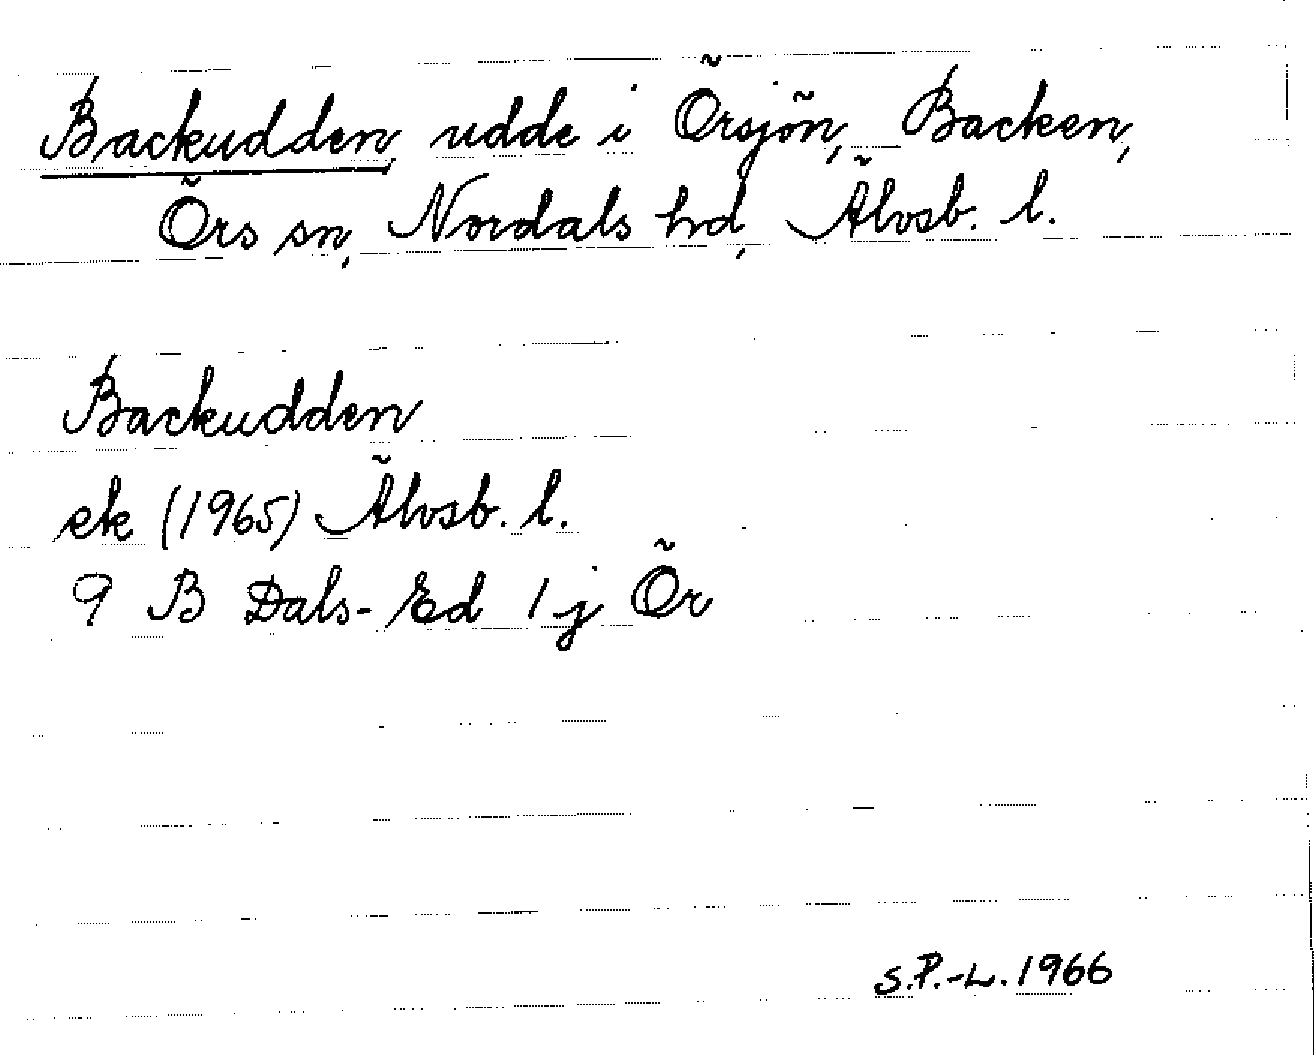 Backudden, udde i Örsjön, Backen,
Örs sn, Nordals hd, Älvsb. l.
Backudden
ek (1965) Älvsb. l.
9 B Dals-Ed 1 j Ör
S.P.-L. 1966